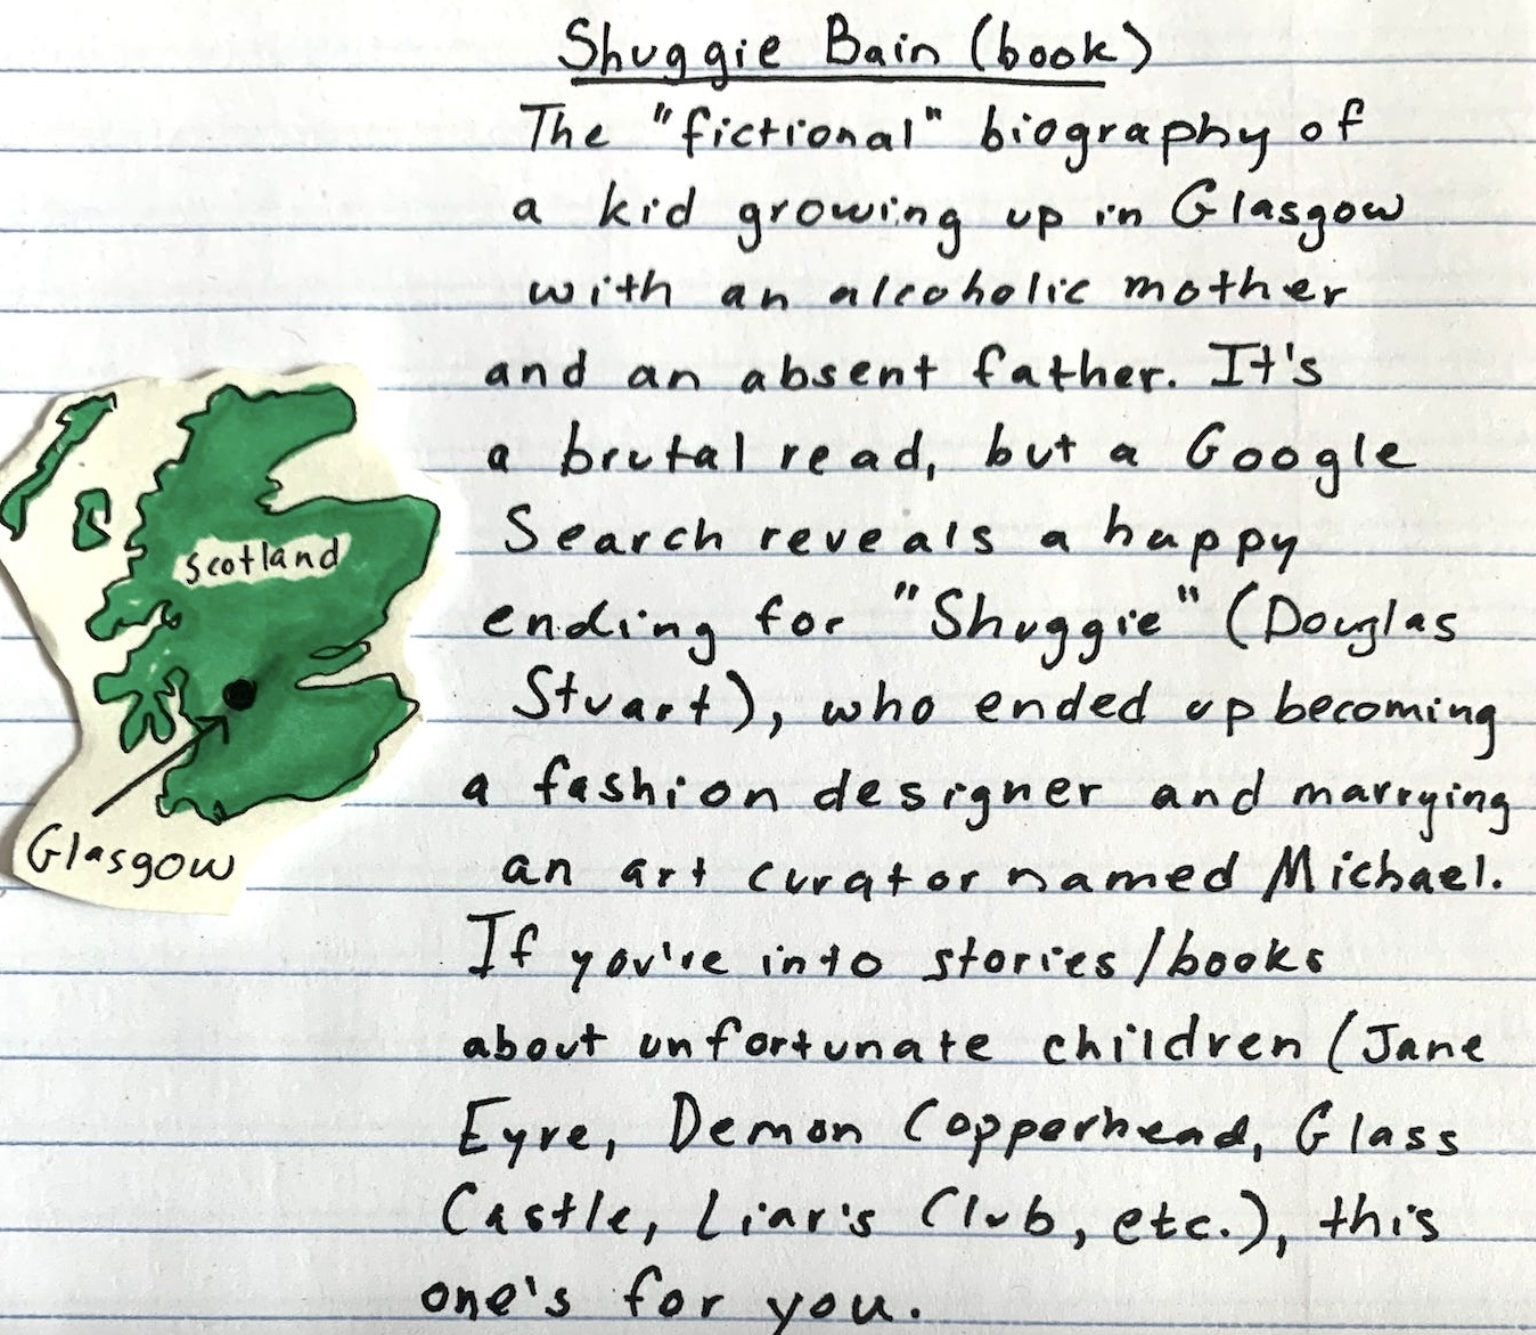 Shuggie Bain (book)
The "fictional" biography of
a kid growing up in Glasgow
with an alcoholic mother
and an absent father. It's
a brutal read, but a Google
Search reveals a happy
ending for "Shuggie" (Douglas
Stuart), who ended up becoming
a fashion designer and marrying
an art curator named Michael.
If you're into stories/books
about unfortunate children (Jane
Eyre, Demon Copperhead, Glass
Castle, Liar's Club, etc.), this
one's for you.
Scotland
Glasgow